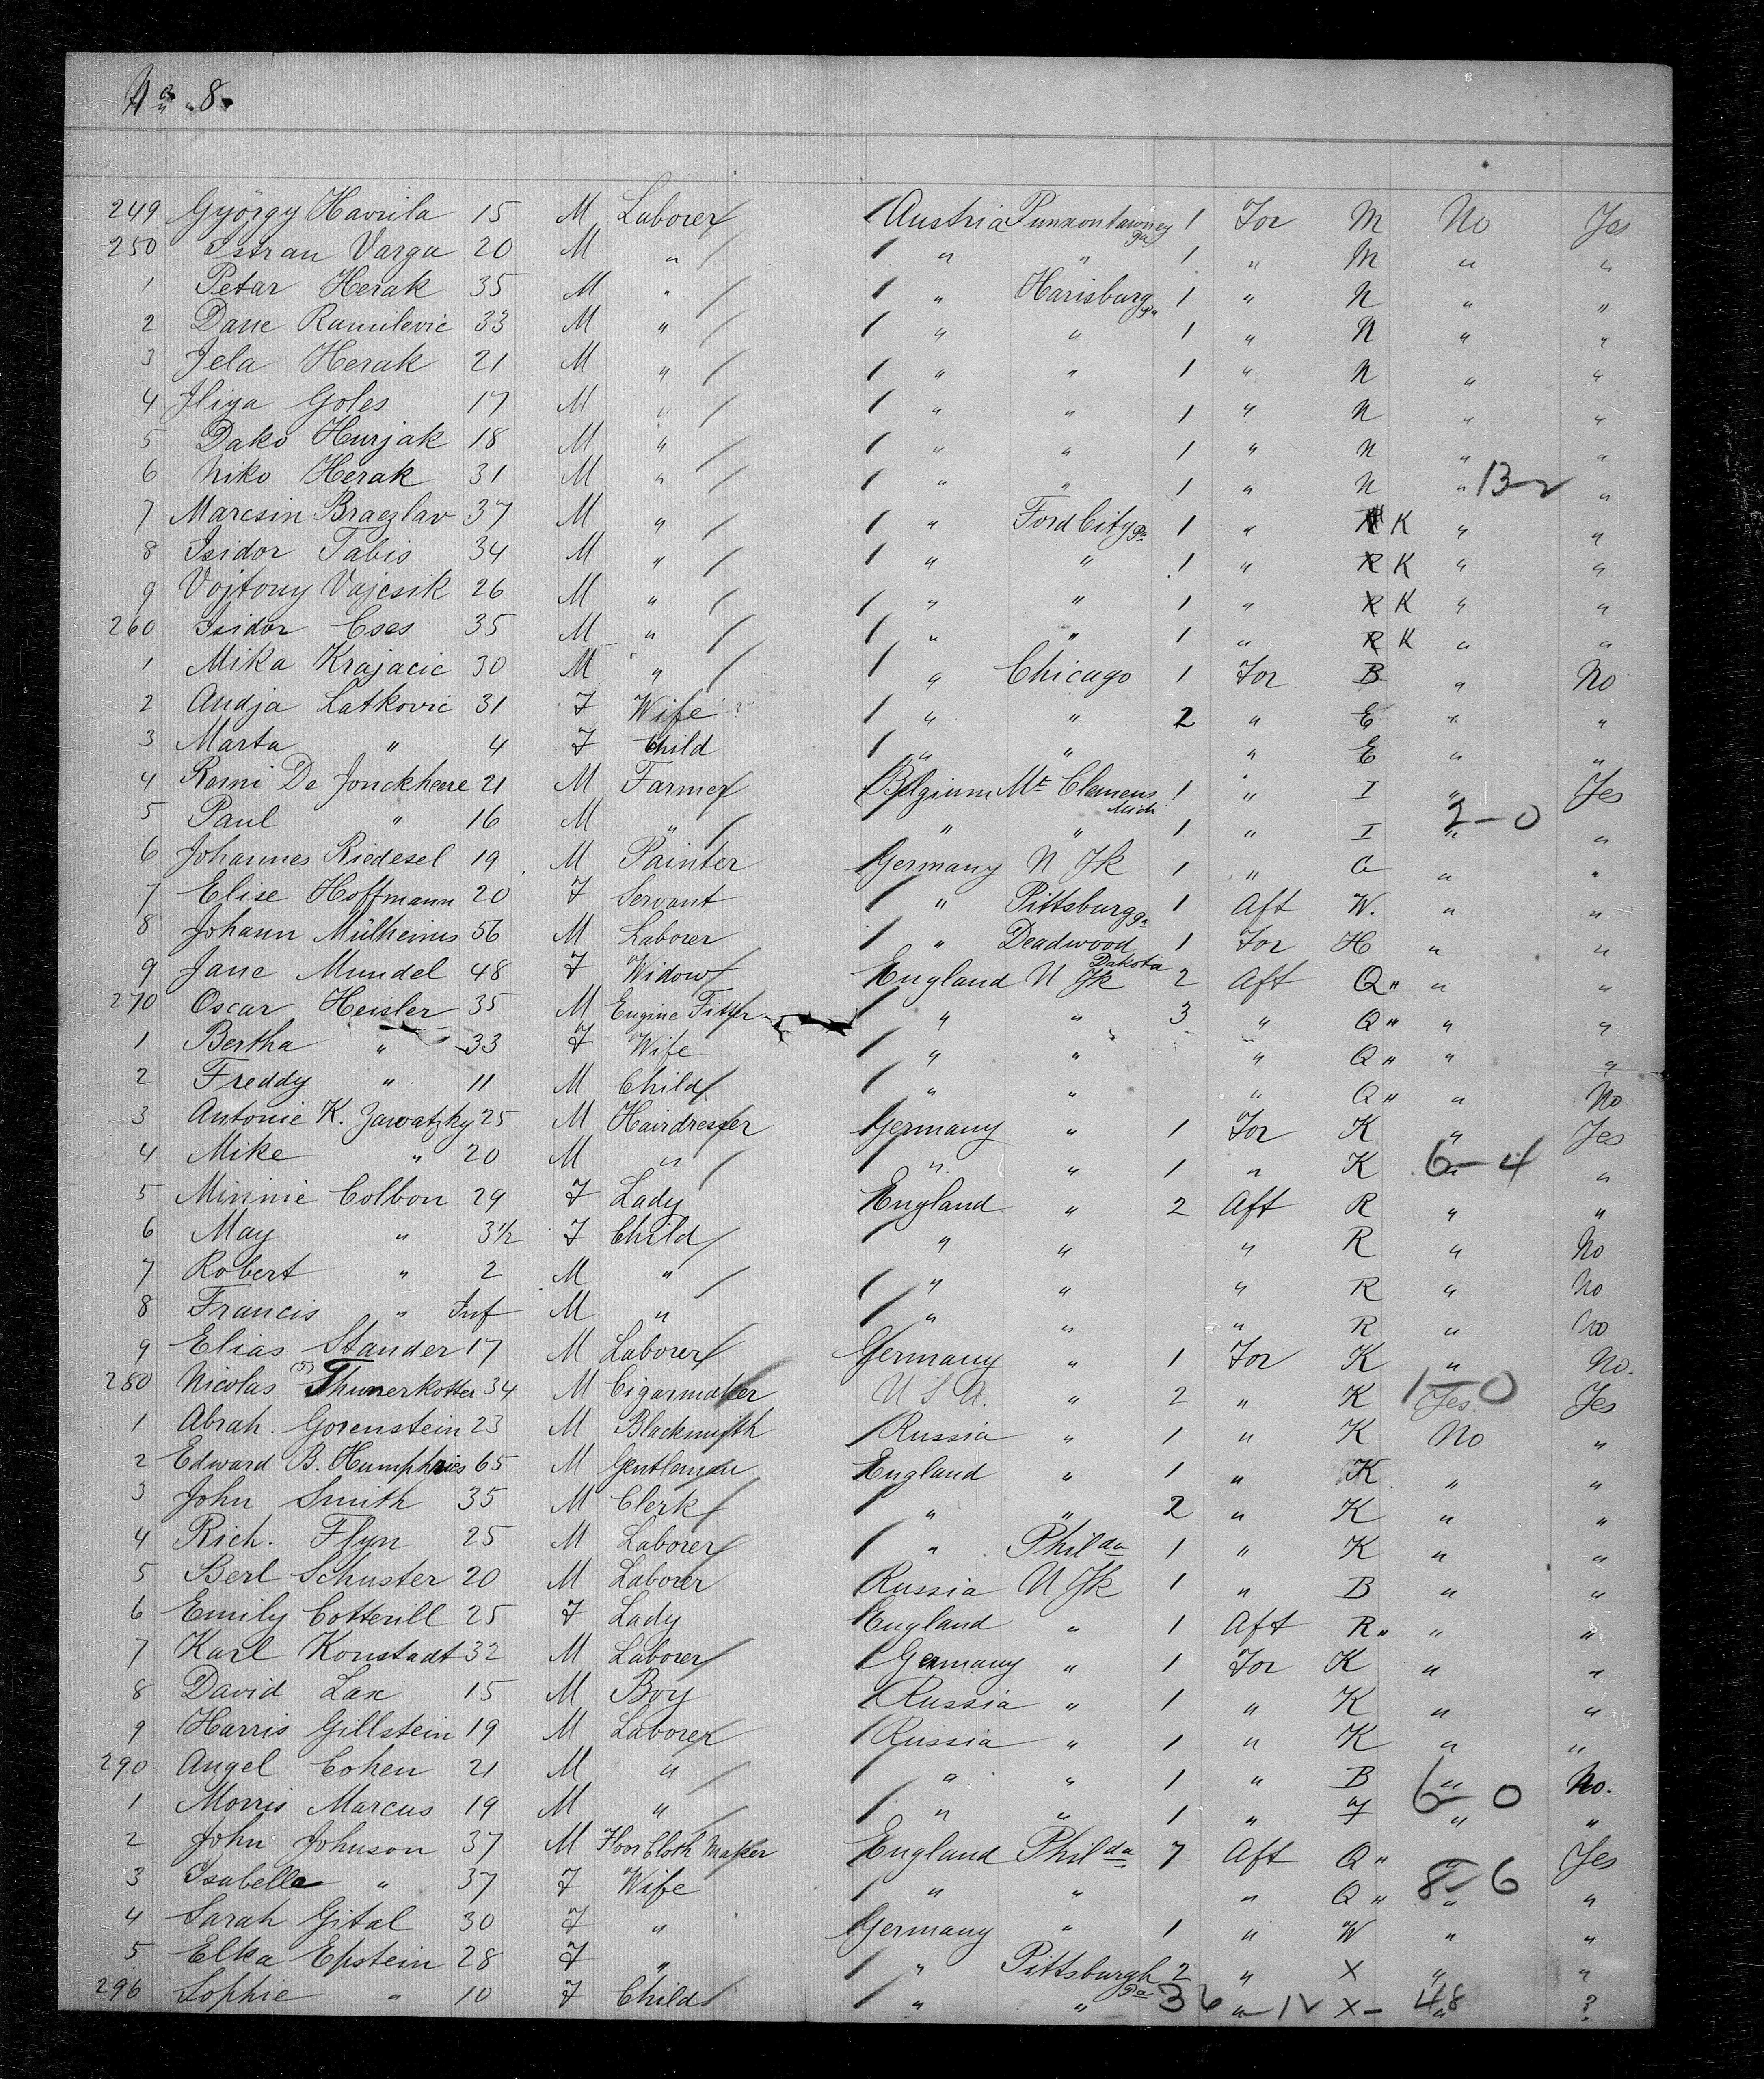 No. 8.
249 György Havrila 15 M Laborer Austria Punxontawney Pa 1 For M No Yes
250 Istvan Varga 20 M " " " 1 " M " "
1 Petar Herak 35 M " " Harisburg Pa 1 " N " "
2 Dane Ramilevic 33 M " " " 1 " N " "
3 Jela Herak 21 M " " " 1 " N " "
4 Iliya Goles 17 M " " " 1 " N " "
5 Dako Hurjak 18 M " " " 1 " N " "
6 Niko Herak 31 M " " " 1 " N " "
7 Marcsin Braczlav 37 M " " Ford City Pa 1 " K " "
8 Isidor Tabis 34 M " " " 1 " R K " "
9 Vojtony Vajcsik 26 M " " " 1 " R K " "
260 Isidor Cses 35 M " " " 1 " R K " "
1 Mika Krajacic 30 M " " Chicago 1 For B " No
2 Andja Latkovic 31 F Wife " " 2 " E " "
3 Marta " 4 F Child " " " E " "
4 Remi De Jonckheere 21 M Farmer Belgium Mt Clemens Mich 1 " I " Yes
5 Paul " 16 M " " " 1 " I " 2-0 "
6 Johannes Riedesel 19 M Painter Germany N Yk 1 " G " "
7 Elise Hoffmann 20 F Servant " Pittsburg Pa 1 Aft W. " "
8 Johann Mülheims 56 M Laborer " Deadwood Dakota 1 For H " "
9 Jane Mundel 48 F Widow England N Yk 2 Aft Q " " "
270 Oscar Heisler 35 M Engine Fitter " " 3 " Q " " "
1 Bertha " 33 F Wife " " " Q " " "
2 Freddy " 11 M Child " " " Q " " No
3 Antonie K. Zawatzky 25 M Hairdresser Germany " 1 For K " Yes
4 Mike " 20 M " " " 1 " K " 6-4 "
5 Minnie Colbon 29 F Lady England " 2 Aft R " "
6 May " 3 1/2 F Child " " " R " No
7 Robert " 2 M " " " " R " No
8 Francis " Inf M " " " " R " No
9 Elias Stander 17 M Laborer Germany " 1 For K " No.
280 Nicolas Thunerkotter 34 M Cigarmaker U S A. " 2 " K Yes. 1-0 Yes
1 Abrah. Gorenstein 23 M Blacksmith Russia " 1 " K No "
2 Edward B. Humphries 65 M Gentleman England " 1 " K " "
3 John Smith 35 M Clerk " " 2 " K " "
4 Rich. Flyn 25 M Laborer " Philda 1 " K " "
5 Berl Schuster 20 M Laborer Russia N Yk 1 " B " "
6 Emily Cotterill 25 F Lady England " 1 Aft R " " "
7 Karl Konstadt 32 M Laborer Germany " 1 For K " "
8 David Lax 15 M Boy Russia " 1 " K " "
9 Harris Gillstein 19 M Laborer Russia " 1 " K " "
290 Angel Cohen 21 M " " " 1 " B " 6-0 No.
1 Morris Marcus 19 M " " " 1 " " "
2 John Johnson 37 M Floor Cloth Maker England Philda 7 Aft Q " Yes
3 Isabella " 37 F Wife " " " Q " " 8-6 "
4 Sarah Gital 30 F " Germany " 1 " W " "
5 Elka Epstein 28 F " " Pittsburgh Pa 2 " X " "
296 Sophie " 10 F Child " " 36 " -12 X- 48 " ?